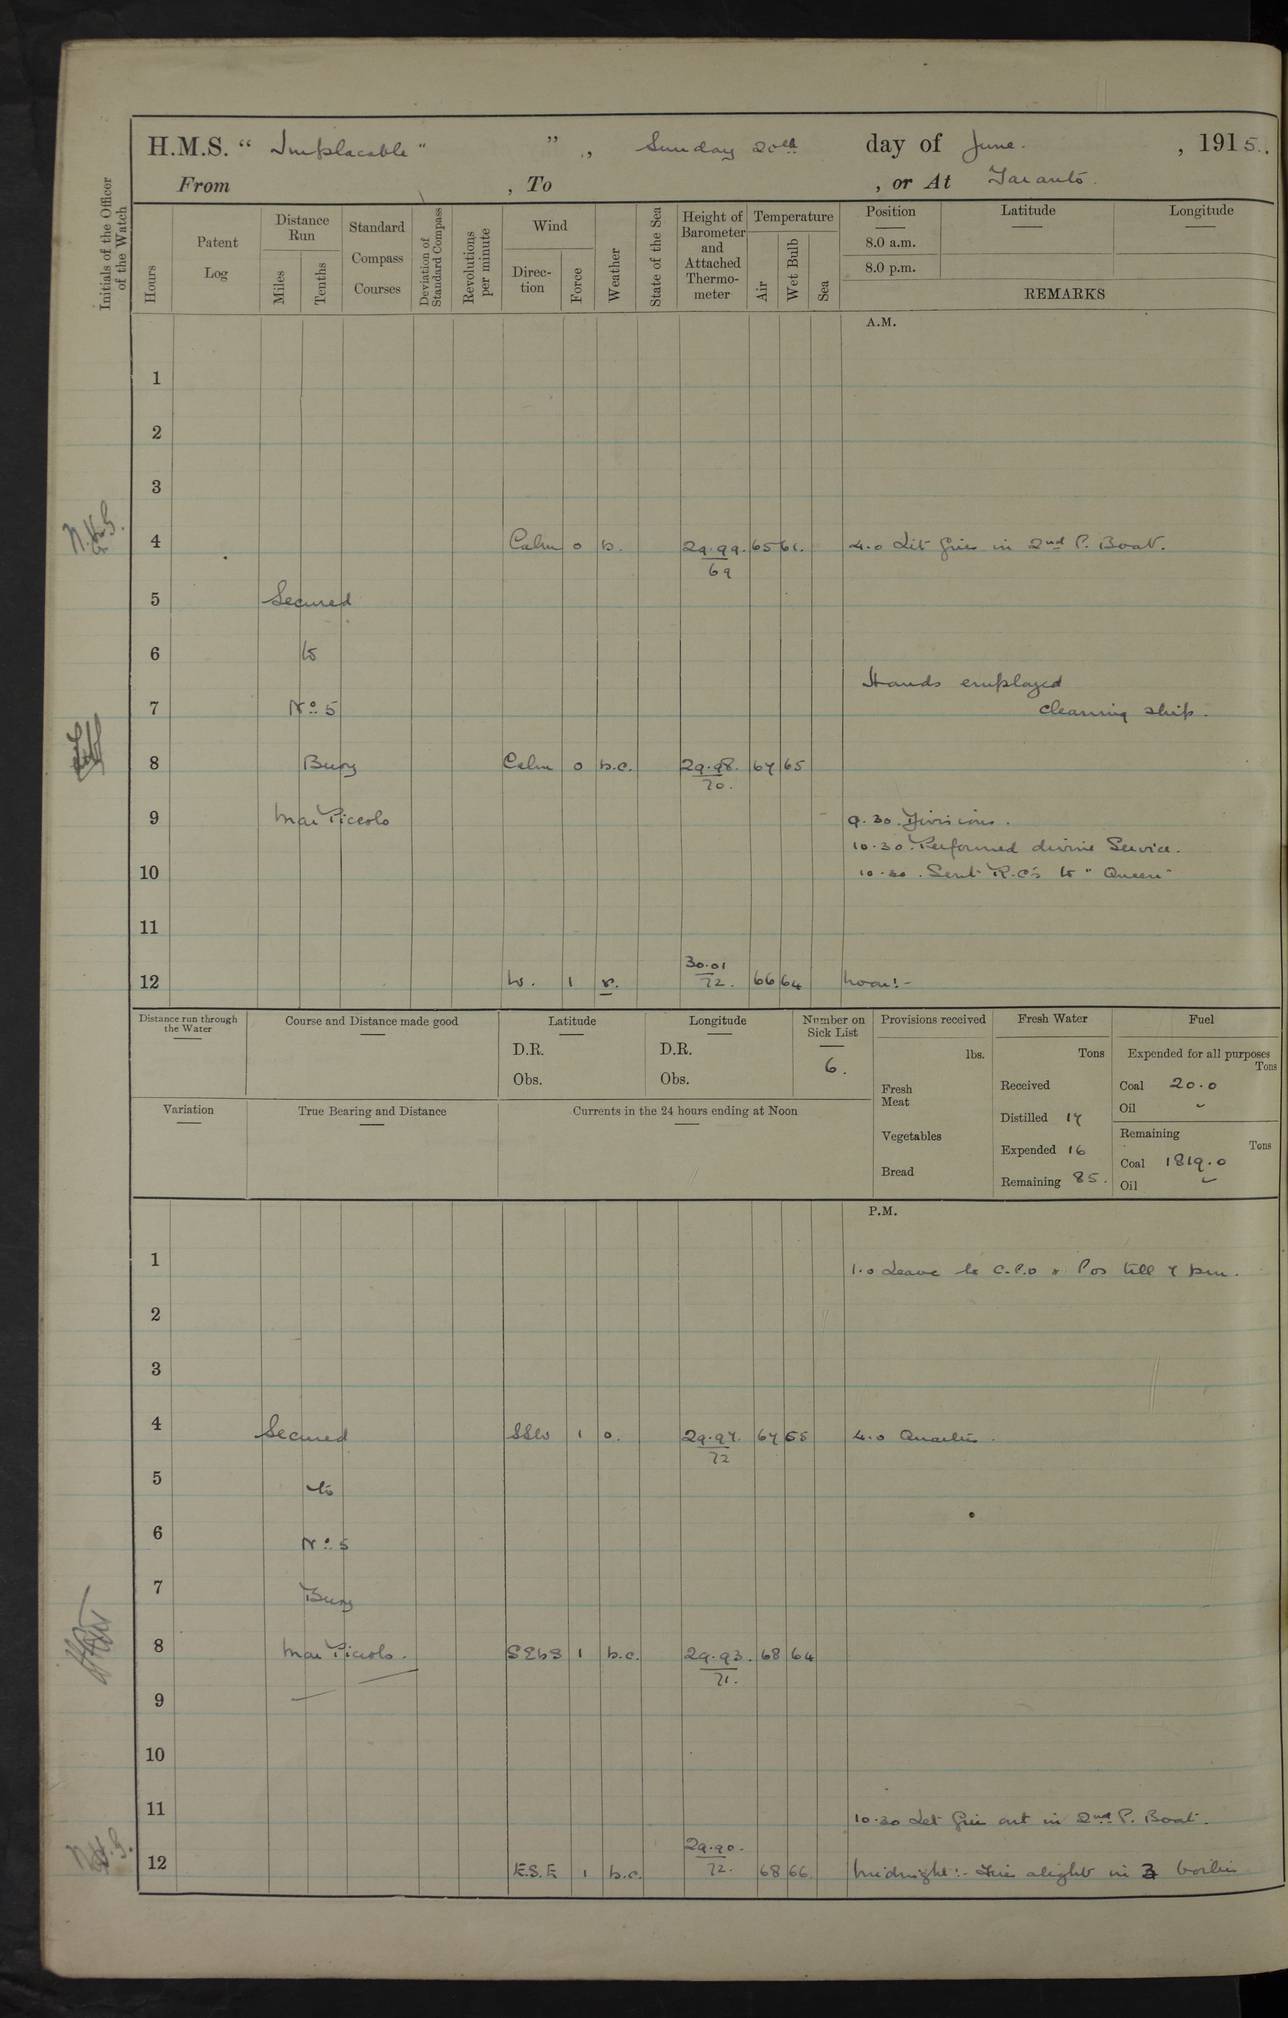 H.M.S. “ Implacable ” ” , Sunday 20th day of June. , 1915.
From , To , or At Taranto.
Initials of the Officer of the Watch
Hours
Patent Log
Distance Run
Miles
Tenths
Standard Compass Courses
Deviation of Standard Compass
Revolutions per minute
Wind
Direc-tion
Force
Weather
State of the Sea
Height of Barometer and Attached Thermo-meter
Temperature
Air
Wet Bulb
Sea
Position Latitude Longitude
8.0 a.m.
8.0 p.m.
REMARKS
A.M.
1
2
3
4 Calm 0 b. 29.99. 65 61. 4.0 Lit fires in 2nd P. Boat.
69
5 Secured
6 to
Hands employed
7 No 5 cleaning ship.
8 Buoy Calm 0 b.c. 29.98. 67 65
70.
9 Mar Piccolo 9.30. Divisions.
10.30. Performed divine Service.
10 10.30. Sent R.C's to "Queen"
11
30.01
12 W. 1 r. 72. 66 64 Noon:-
Distance run through the Water
Course and Distance made good
Latitude
D.R.
Obs.
Longitude
D.R.
Obs.
Number on Sick List
6.
Provisions received
lbs.
Fresh Meat
Vegetables
Bread
Fresh Water
Tons
Received
Distilled 17
Expended 16
Remaining 85.
Fuel
Expended for all purposes
Tons
Coal 20.0
Oil
Remaining
Tons
Coal 1819.0
Oil
Variation
True Bearing and Distance
Currents in the 24 hours ending at Noon
P.M.
1 1.0 Leave to C.P.O & Pos till 7 pm.
2
3
4 Secured SSW 1 o. 29.97. 67 65 4.0 Quarters.
72
5 to
6 No 5
7 Buoy
8 Mar Piccolo. SEbS 1 b.c. 29.93. 68 64
71.
9
10
11 10.30 Let fire out in 2nd P. Boat.
29.90.
12 E.S.E 1 b.c. 72. 68 66 Midnight:- Fires alight in 3 boilers